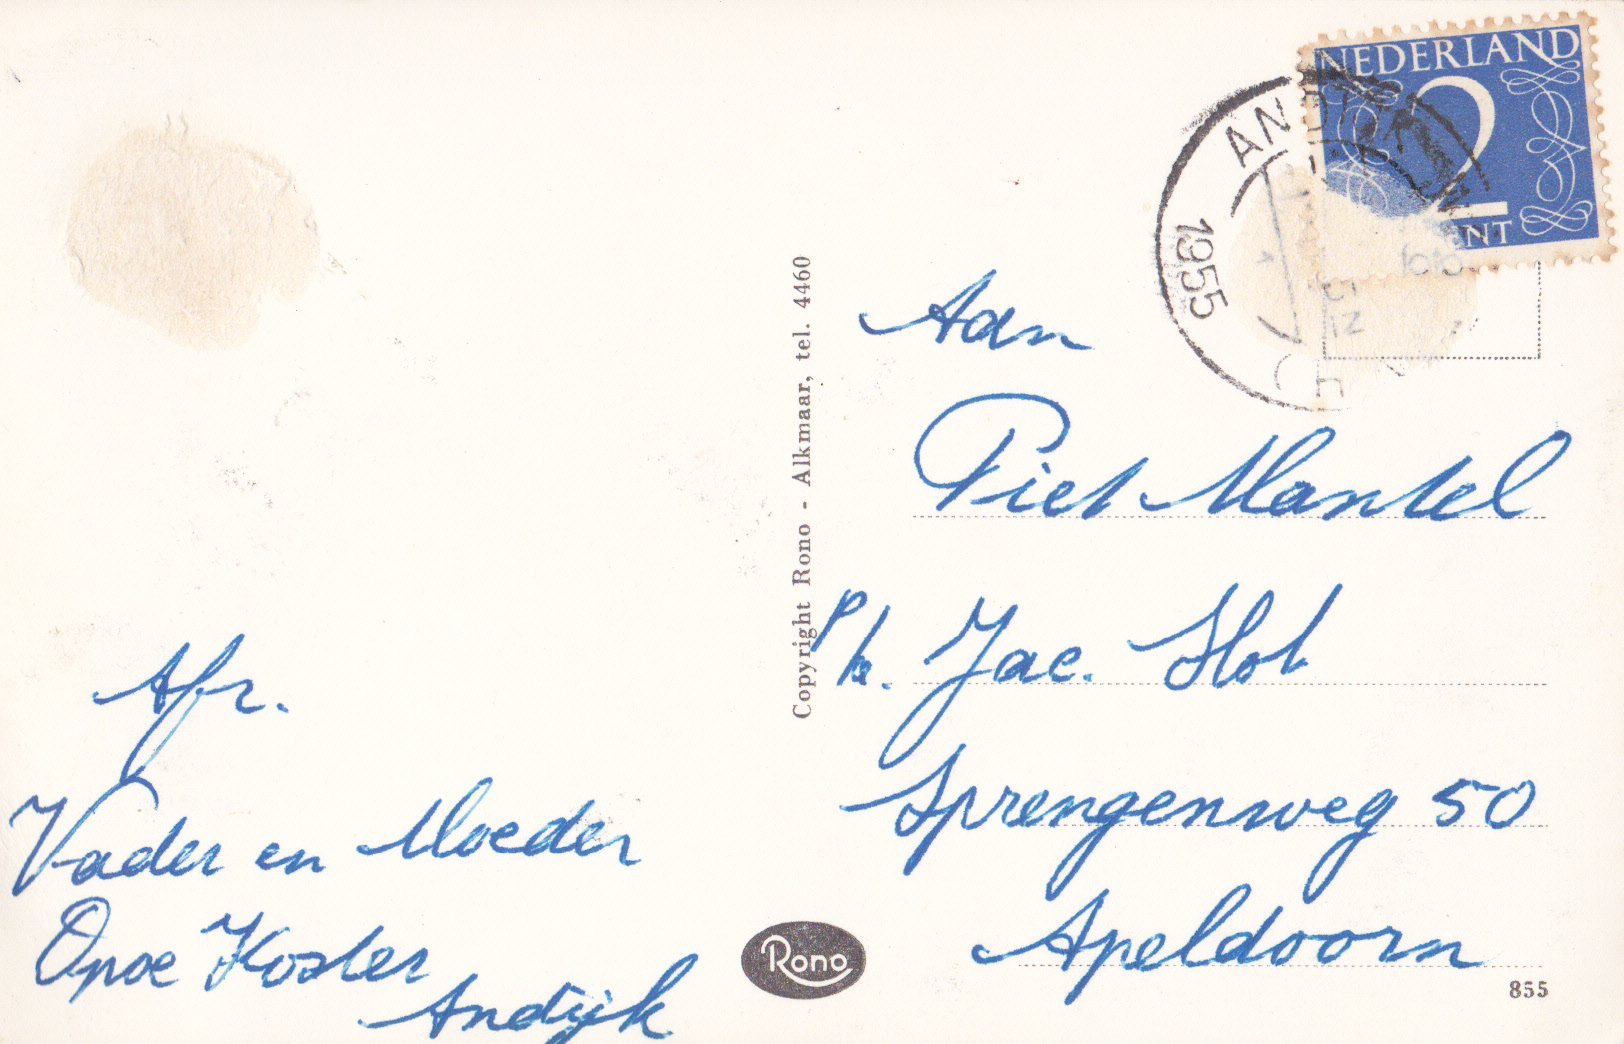 NEDERLAND
2
CENT
ANDIJK
1955
Aan
Piet Mantel
p/a. Jac. Slot
Sprengenweg 50
Apeldoorn
Afz.
Vader en Moeder
Opoe Koster
Andijk
Copyright Rono - Alkmaar, tel. 4460
Rono
855